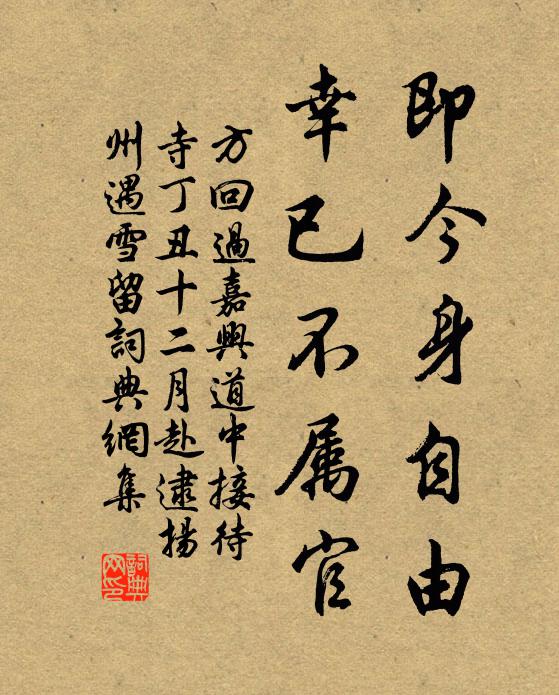 即今身自由
幸已不属官
方回過嘉興道中接待
寺丁丑十二月赴逮揚
州遇雪留詞典網集
詞典
网印